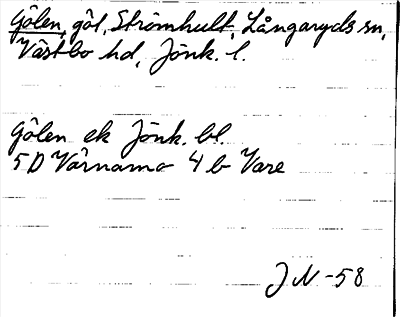 Gölen, göl, Strömhult, Långaryds sn,
Västbo hd, Jönk. l.
Gölen ek Jönk. bl.
5D Värnamo 4 b Vare
J N -58